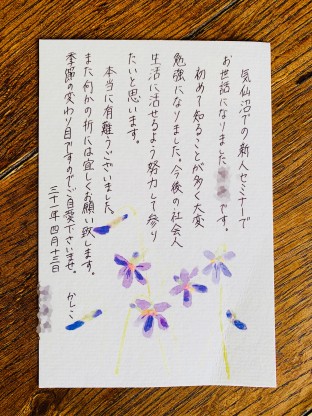 気仙沼での新人セミナーで
お世話になりました です。
初めて知ることが多く大変
勉強になりました。今後の社会人
生活に活せるよう努力して参り
たいと思います。
本当に有難うございました。
また何かの折には宜しくお願い致します。
季節の変わり目ですのでご自愛下さいませ。
かしこ
三十一年四月十三日